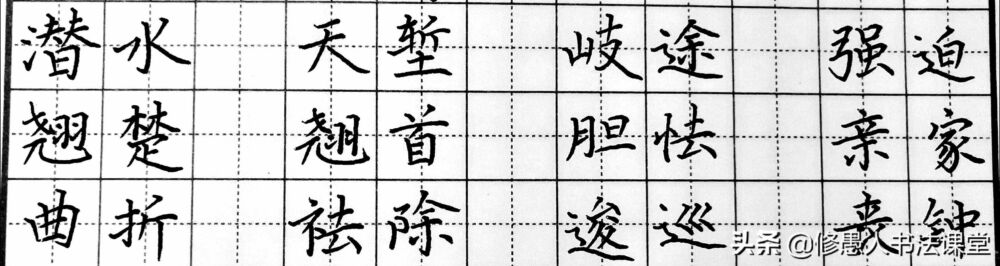 潜水 天堑 歧途 强迫
翘楚 翘首 胆怯 亲家
曲折 祛除 逡巡 丧钟
头条 @修愚人书法课堂